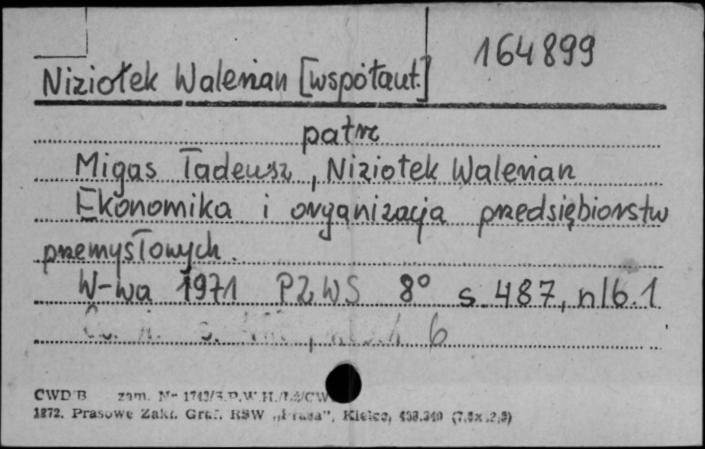 164899
Niziołek Walerian [współaut.]
patrz
Migas Tadeusz, Niziołek Walerian
Ekonomika i organizacja przedsiębiorstw
przemysłowych.
W-wa 1971 PZWS 8° s. 487, nlb. 1
6
CWD B zam. Nr
1872. Prasowe Zakł. Graf. RSW „Prasa", Kielce,